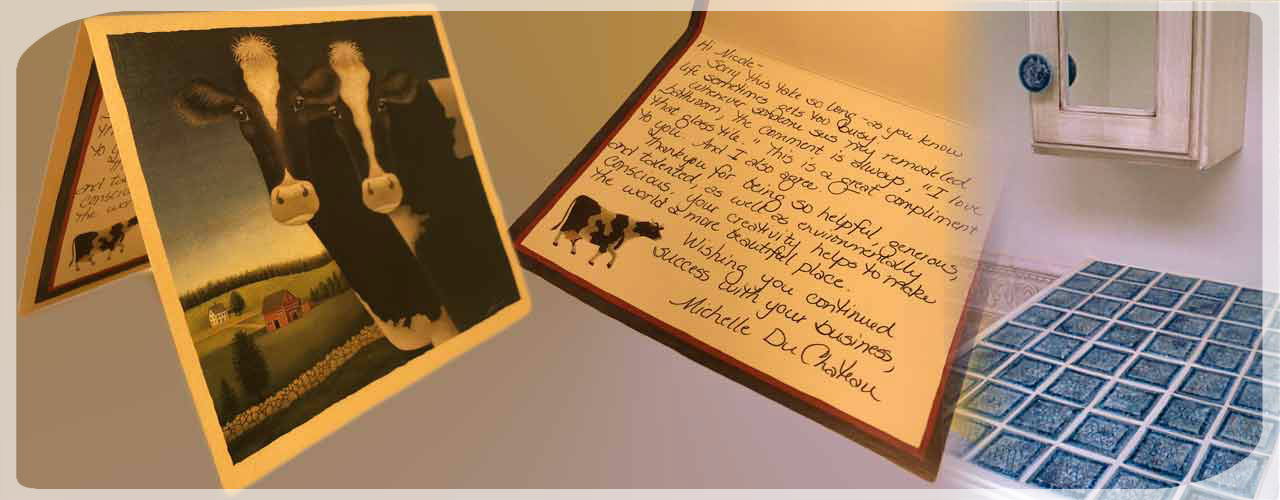 Hi Nicole-
Sorry this take so long - as you know
life sometimes gets too busy.
Whenever someone sees my remodeled
bathroom, the comment is always, "I love
that glass tile." This is a great compliment
to you. And I also agree.
Thankyou for being so helpful, generous,
and talented, as well as environmentally
conscious, your creativity helps to make
the world a more beautiful place.
Wishing you continued
success with your business,
Michelle Du Chateau